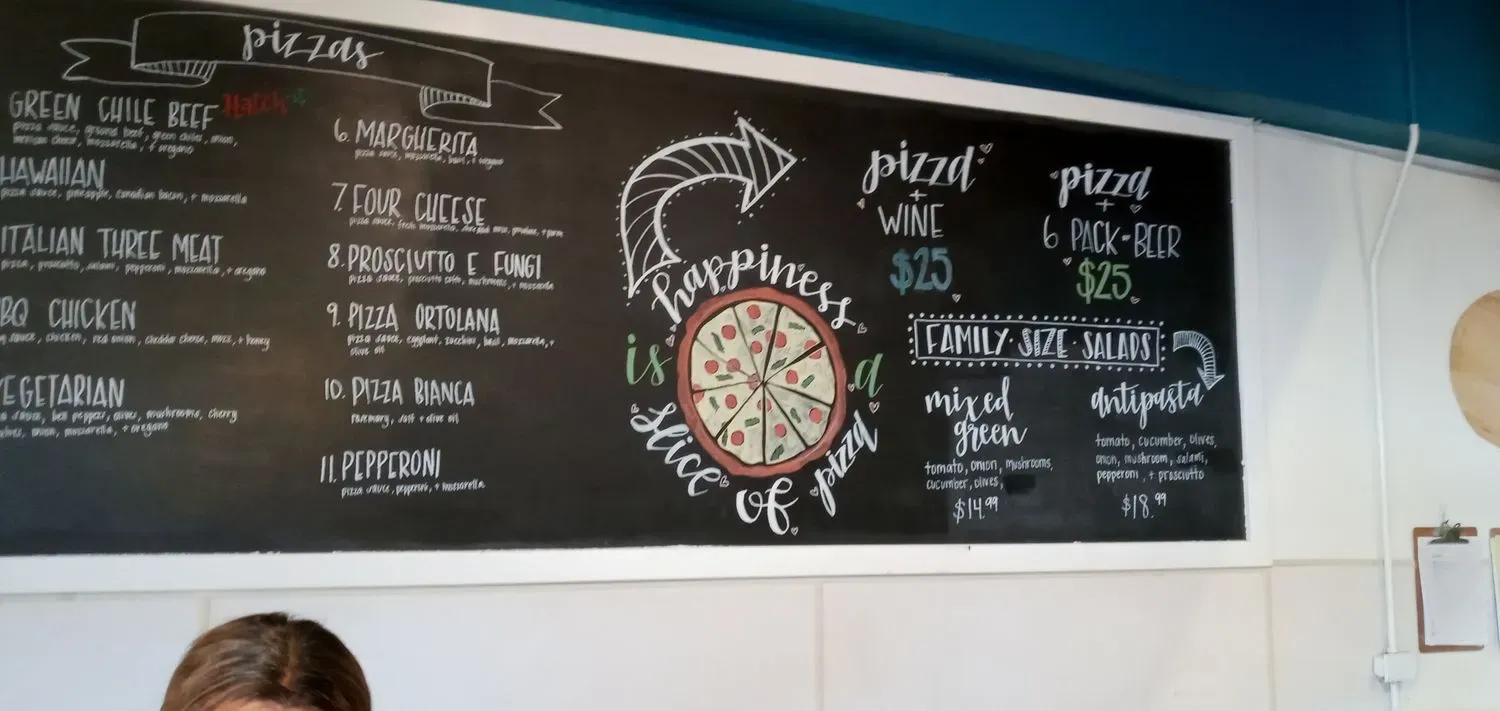 pizzas
GREEN CHILE BEEF Hatch
pizza sauce, ground beef, green chiles, onion,
mexican cheese, mozzarella, + oregano
HAWAIIAN
pizza sauce, pineapple, canadian bacon, + mozzarella
ITALIAN THREE MEAT
pizza, prosciutto, salami, pepperoni, mozzarella, + oregano
BQ CHICKEN
sauce, chicken, red onion, cheddar cheese, mozz, + honey
EGETARIAN
sauce, bell pepper, olives, mushrooms, cherry
onion, mozzarella, + oregano
6. MARGHERITA
pizza sauce, mozzarella, basil, + oregano
7. FOUR CHEESE
pizza sauce, fresh mozzarella, shredded mozz, provolone, + parm
8. PROSCIUTTO E FUNGI
pizza sauce, prosciutto cotto, mushrooms, + mozzarella
9. PIZZA ORTOLANA
pizza sauce, eggplant, zucchini, basil, mozzarella, +
olive oil
10. PIZZA BIANCA
rosemary, salt + olive oil
11. PEPPERONI
pizza sauce, pepperoni, + mozzarella
happiness
is a
slice of pizza
pizza
+
WINE
$25
pizza
+
6 PACK-BEER
$25
FAMILY·SIZE·SALADS
mixed
green
tomato, onion, mushrooms,
cucumber, olives,
$14.99
antipasta
tomato, cucumber, olives,
onion, mushroom, salami,
pepperoni, + prosciutto
$18.99